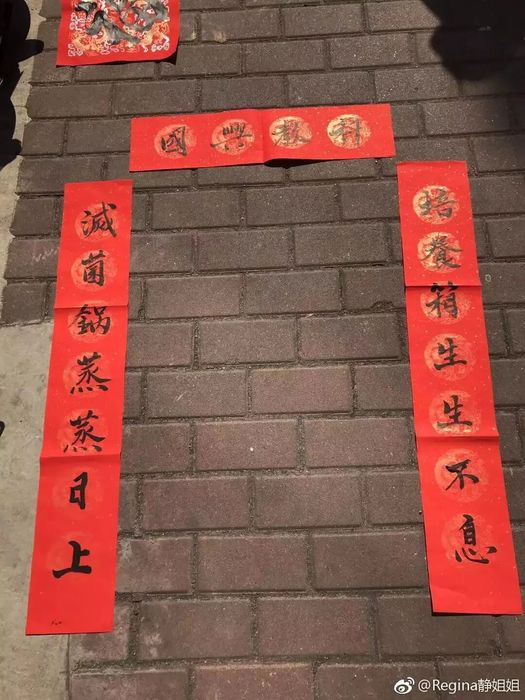 科教興國
培養箱生生不息
滅菌鍋蒸蒸日上
@Regina静姐姐